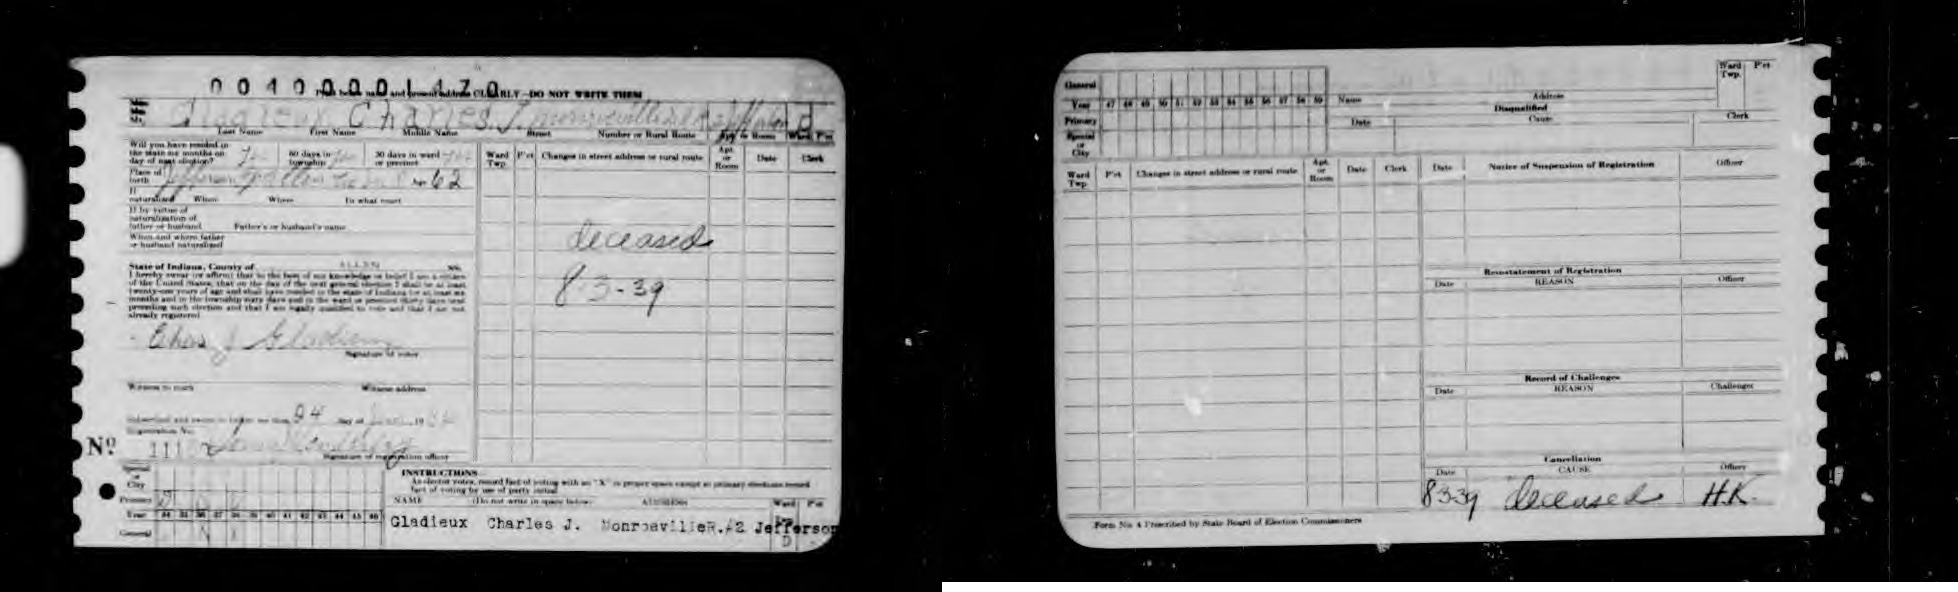 0 0 4 0 0 0 0 1 4 7 0
Print below name and present address CLEARLY—DO NOT WRITE THEM
Gladieux Charles J. Monroeville R R 2 Jefferson D
Last Name First Name Middle Name Street Number or Rural Route Apt. or Room Ward P'ct
Will you have resided in the state six months on day of next election? Yes 60 days in township Yes 30 days in ward or precinct Yes
Place of birth Jefferson Age 62
If naturalized When Where In what court
If by virtue of naturalization of father or husband Father's or husband's name
When and where father or husband naturalized
State of Indiana, County of ALLEN SS.
I hereby swear or affirm that to the best of my knowledge or belief I am a citizen
of the United States, that on the day of the next general election I shall be at least
twenty-one years of age and shall have resided in the state of Indiana for at least six
months and in the township sixty days and in the ward or precinct thirty days next
preceding such election and that I am legally qualified to vote and that I am not
already registered
Chas J Gladieux
Signature of voter
Witness to mark Witness address
Subscribed and sworn to before me this 24 day of 19
Registration No.
No. 111
Signature of registration officer
Ward Twp. P'ct Changes in street address or rural route Apt. or Room Date Clerk
deceased
8-3-39
Special or City
Primary
Year 34 35 36 37 38 39 40 41 42 43 44 45 46
General
INSTRUCTIONS
As elector votes, record fact of voting with an "X" in proper space except at primary elections record
fact of voting by use of party initial
NAME (Do not write in space below) ADDRESS Ward P'ct
Gladieux Charles J. Monroeville R.#2 Jefferson
D
General
Year 47 48 49 50 51 52 53 54 55 56 57 58 59
Primary
Special or City
Name Address Ward Twp. P'ct
Disqualified
Date Cause Clerk
Ward Twp. P'ct Changes in street address or rural route Apt. or Room Date Clerk
Date Notice of Suspension of Registration Officer
Reinstatement of Registration
Date REASON Officer
Record of Challenges
Date REASON Challenger
Cancellation
Date CAUSE Officer
8-3-39 deceased H.K.
Form No. 4 Prescribed by State Board of Election Commissioners